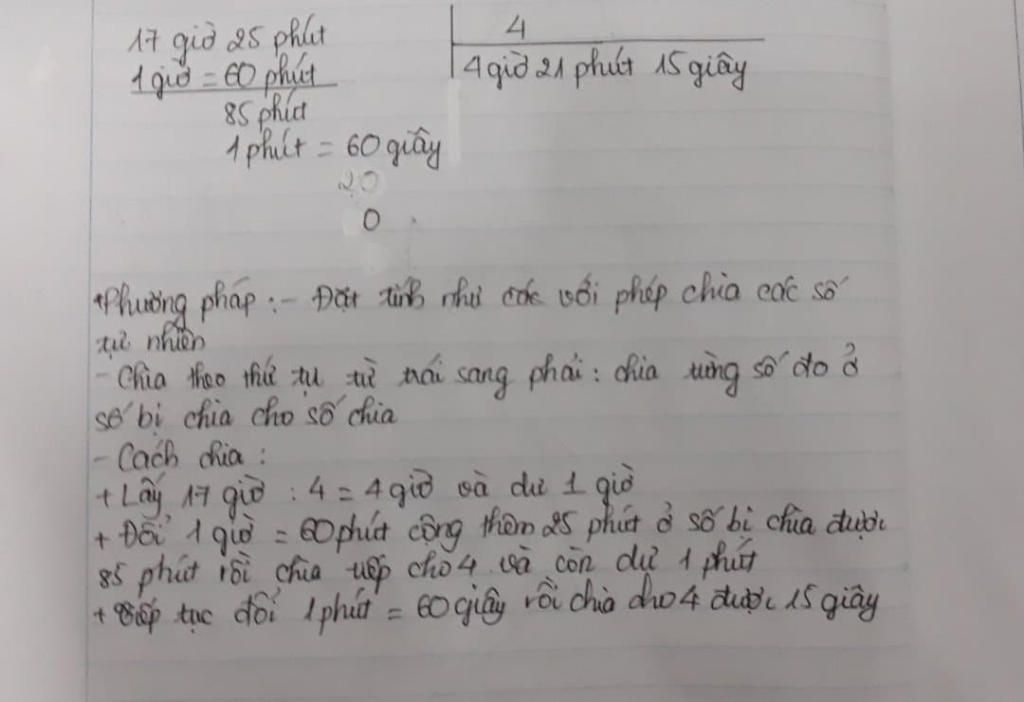 17 giờ 25 phút
4
1 giờ = 60 phút
4 giờ 21 phút 15 giây
85 phút
1 phút = 60 giây
20
0
*Phương pháp : - Đặt tính như các với phép chia các số
tự nhiên
- Chia theo thứ tự từ trái sang phải : chia từng số đo ở
số bị chia cho số chia
- Cách chia :
+ Lấy 17 giờ : 4 = 4 giờ và dư 1 giờ
+ Đổi 1 giờ = 60 phút cộng thêm 25 phút ở số bị chia được
85 phút rồi chia tiếp cho 4 và còn dư 1 phút
+ Tiếp tục đổi 1 phút = 60 giây rồi chia cho 4 được 15 giây